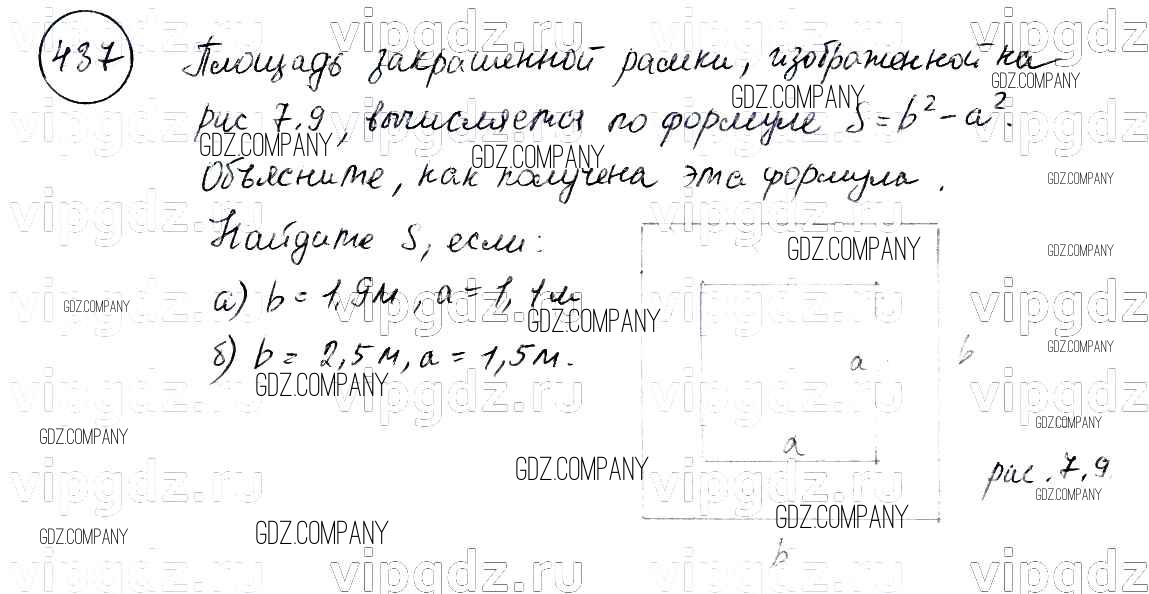 437 Площадь закрашенной рамки, изображенной на
рис 7.9, вычисляется по формуле S = b² - a².
Объясните, как получена эта формула.
Найдите S, если:
а) b = 1,9м, a = 1,1м
б) b = 2,5м, a = 1,5м.
a
b
a
b
рис. 7.9
vipgdz.ru
GDZ.COMPANY